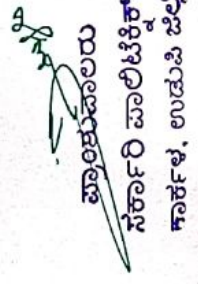 ಪ್ರಾಂಶುಪಾಲರು
ಸರ್ಕಾರಿ ಪಾಲಿಟೆಕ್ನಿಕ್
ಕಾರ್ಕಳ, ಉಡುಪಿ ಜಿಲ್ಲೆ